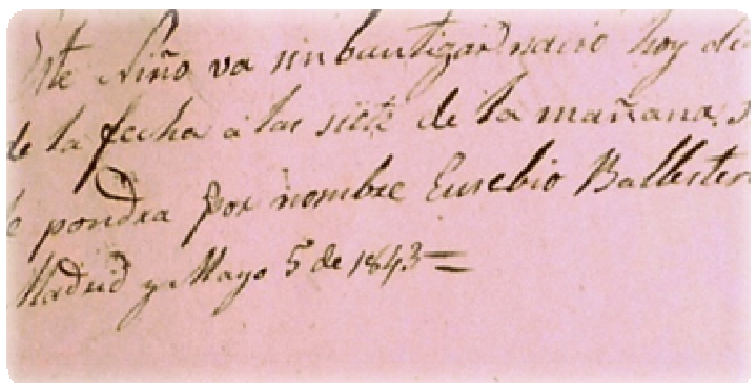 Este Niño va sin bautizar nacio hoy dia
de la fecha a las siete de la mañana, s
le pondra por nombre Eusebio Ballester
Madrid y Mayo 5 de 1843=